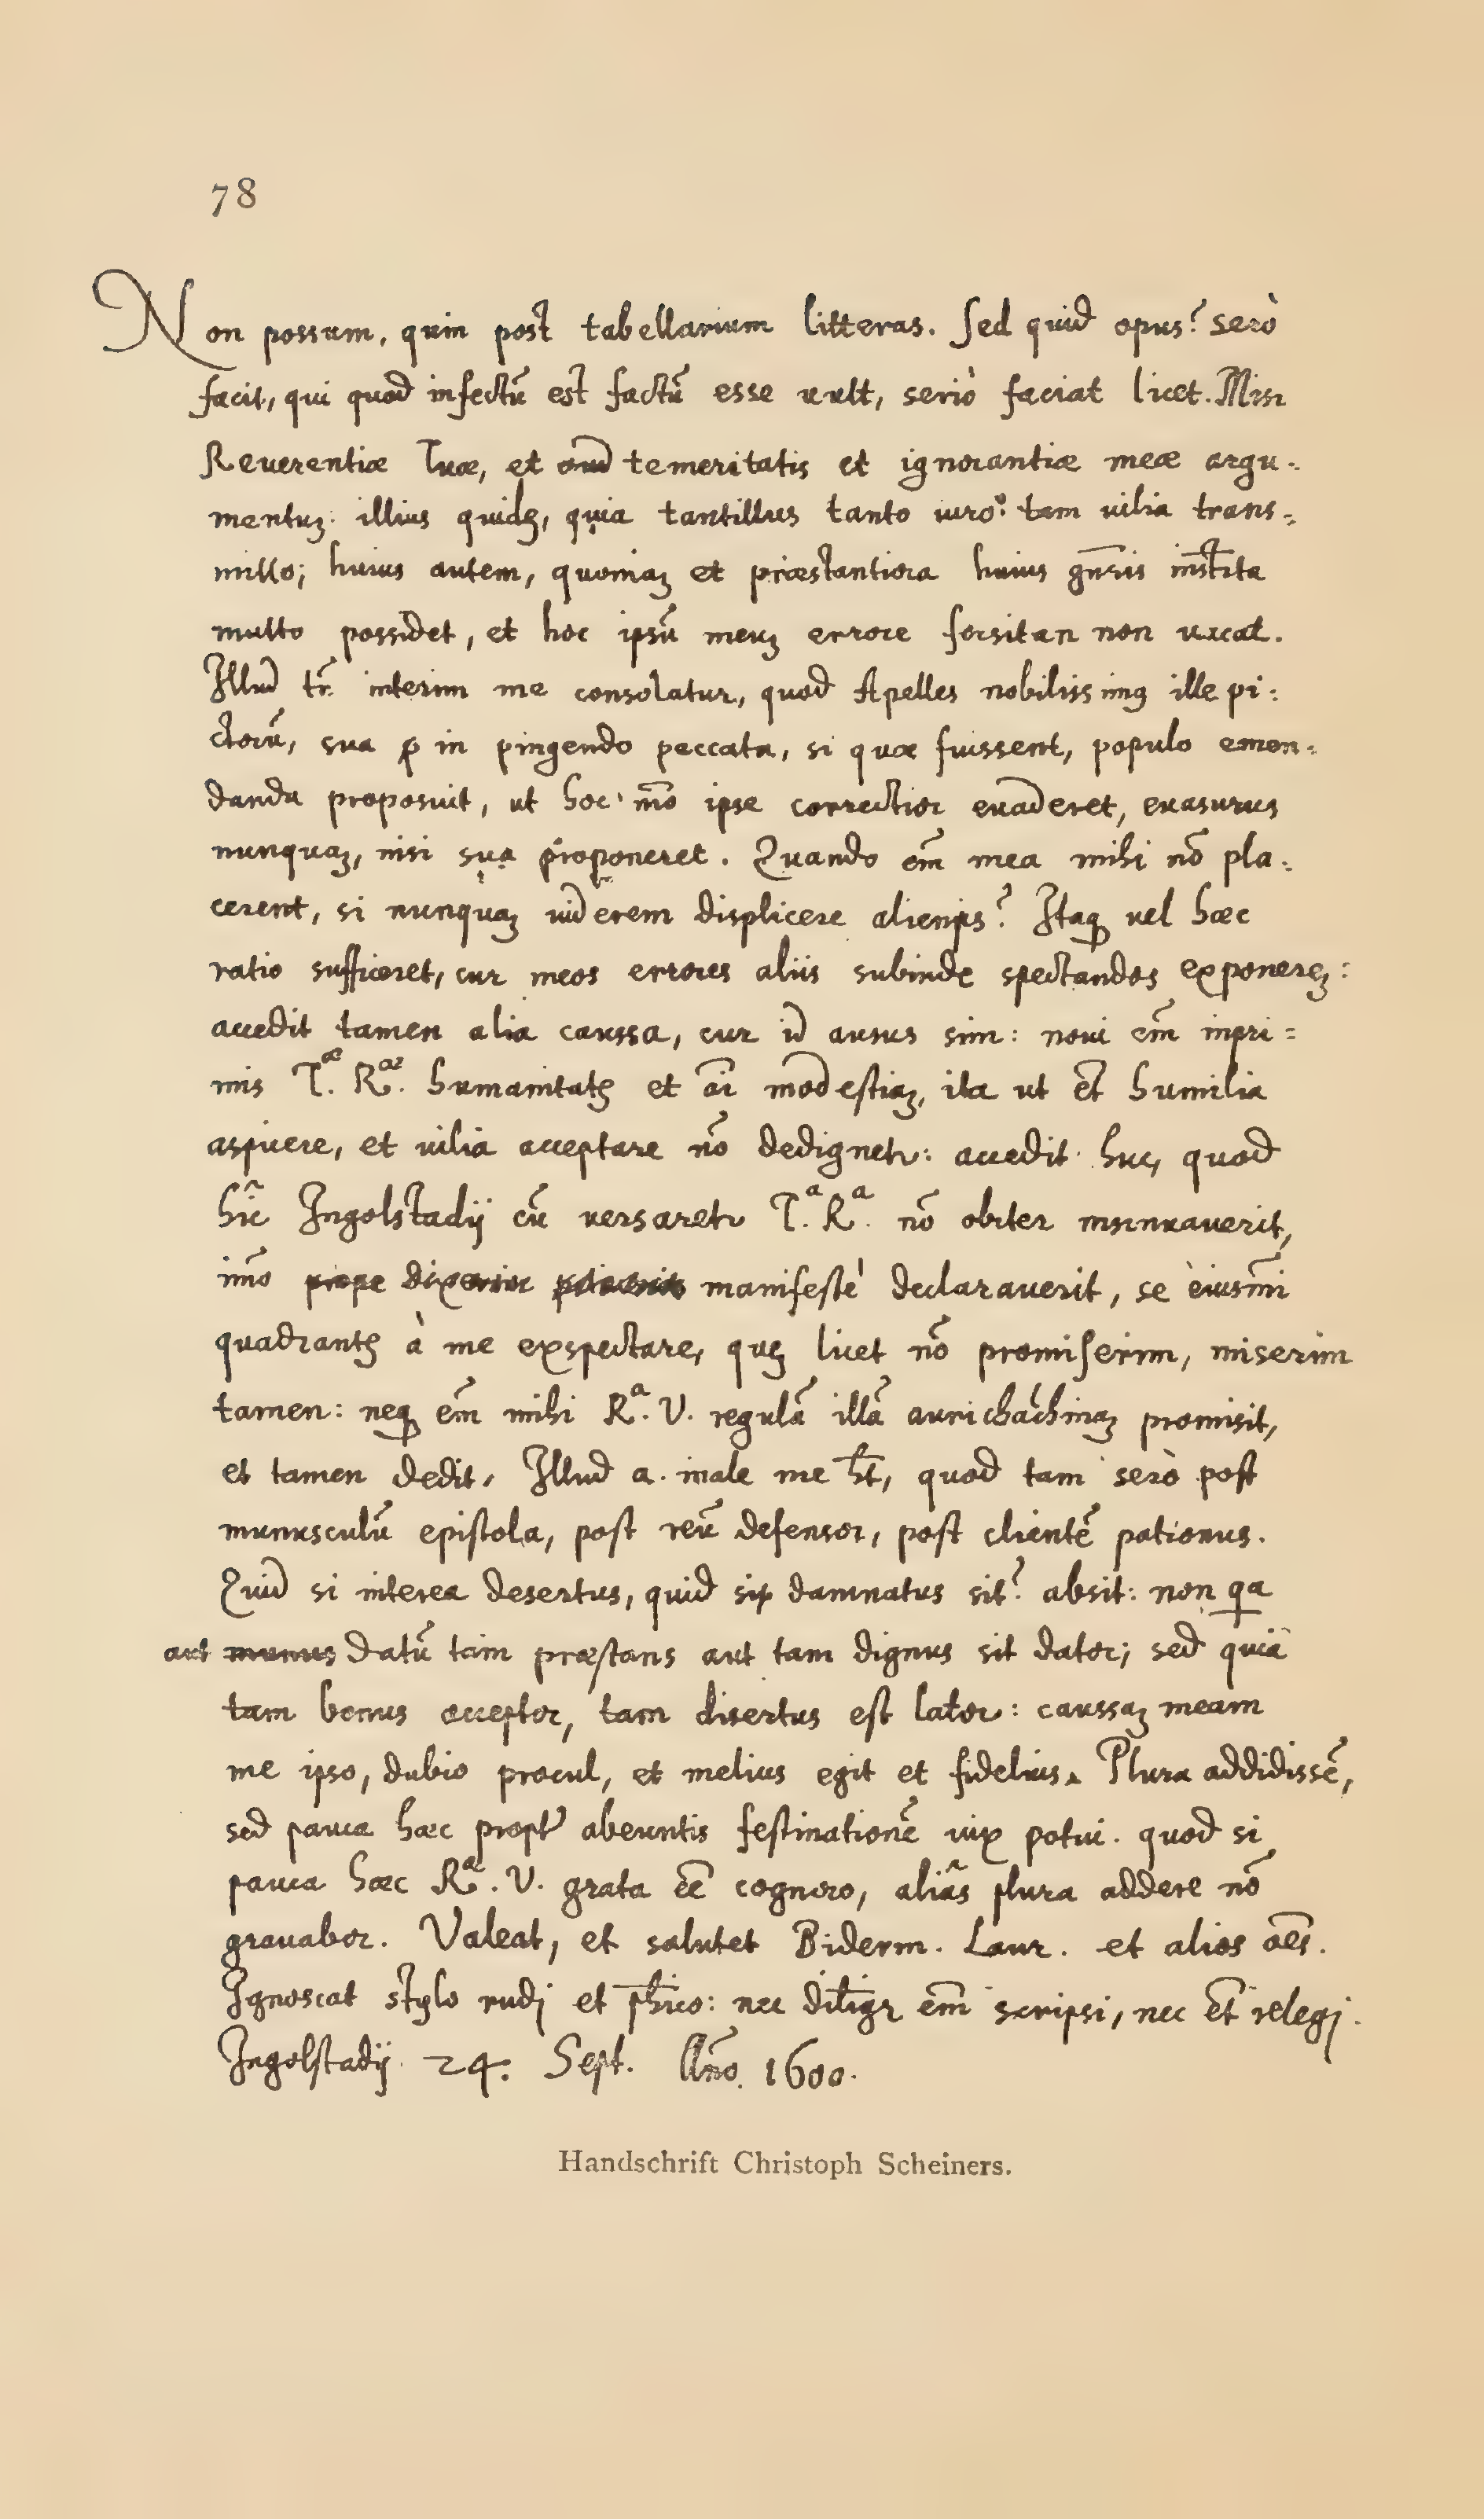 78
Non possum, quin post tabellarium litteras. Sed quid opus? serò
facit, qui quod infectũ est factũ esse uult, seriò faciat licet. Misi
Reuerentiæ Tuæ, et temeritatis et ignorantiæ meæ argu-
mentuȝ: illius quidȝ, quia tantillus tanto uiro: tam uilia trans=
mitto; huius autem, quoniaȝ et præstantiora huius gñris inst̄ita
multo possidet, et hoc ipsũ meuȝ errore forsitan non uacat.
Illud tñ interim me consolatur, quod Apelles nobilissimꝯ ille pi:
ctorũ, sua in pingendo peccata, si quæ fuissent, populo emen=
danda proposuit, ut hoc mõo ipse correctior euaderet, euasurus
nunquaȝ, nisi sua proponeret. Quando em̃ mea mihi nõ pla:
cerent, si nunquaȝ uiderem displicere alienis? Itaqꝫ uel hæc
ratio sufficeret, cur meos errores aliis subinde spectandos exponereȝ:
accedit tamen alia caussa, cur id ausus sim: noui em̃ inpri=
mis T.æ R.æ humanitatȝ et modestiaȝ, ita ut et̃ humilia
aspicere, et uilia acceptare nõ dedignetr: accedit huc, quod
hîc Ingolstadij cũ uersaretr T.a R.a nõ obiter insinuauerit,
im̃o prope dixerim manifestè declarauerit, se eiusm̃i
quadrantȝ à me exspectare, queȝ licet nõ promiserim, miserim
tamen: neqꝫ em̃ mihi R.a V. regulã illã aurichalchinaȝ promisit,
et tamen dedit. Illud a. male me h̃t, quod tam serò post
munusculũ epistola, post reũ defensor, post clientẽ patronus.
Quid si interea desertus, quid si damnatus sit? absit: non qa
aut munus datũ tam præstans aut tam dignus sit dator; sed quia
tam bonus acceptor, tam disertus est lator: caussaȝ meam
me ipso, dubio procul, et melius egit et fidelius. Plura addidissẽ,
sed pauca hæc propt' abeuntis festinationẽ uix potui. quod si
pauca hæc R.a V. grata eẽ cognoro, aliâs plura addere nõ
grauabor. Valeat, et salutet Biderm. Laur. et alios oẽs.
Ignoscat stylo rudi et ph̃ico: nec diligr em̃ scripsi, nec et̃ relegj.
Ingolstadij 24. Sept. Añno. 1600.
Handschrift Christoph Scheiners.